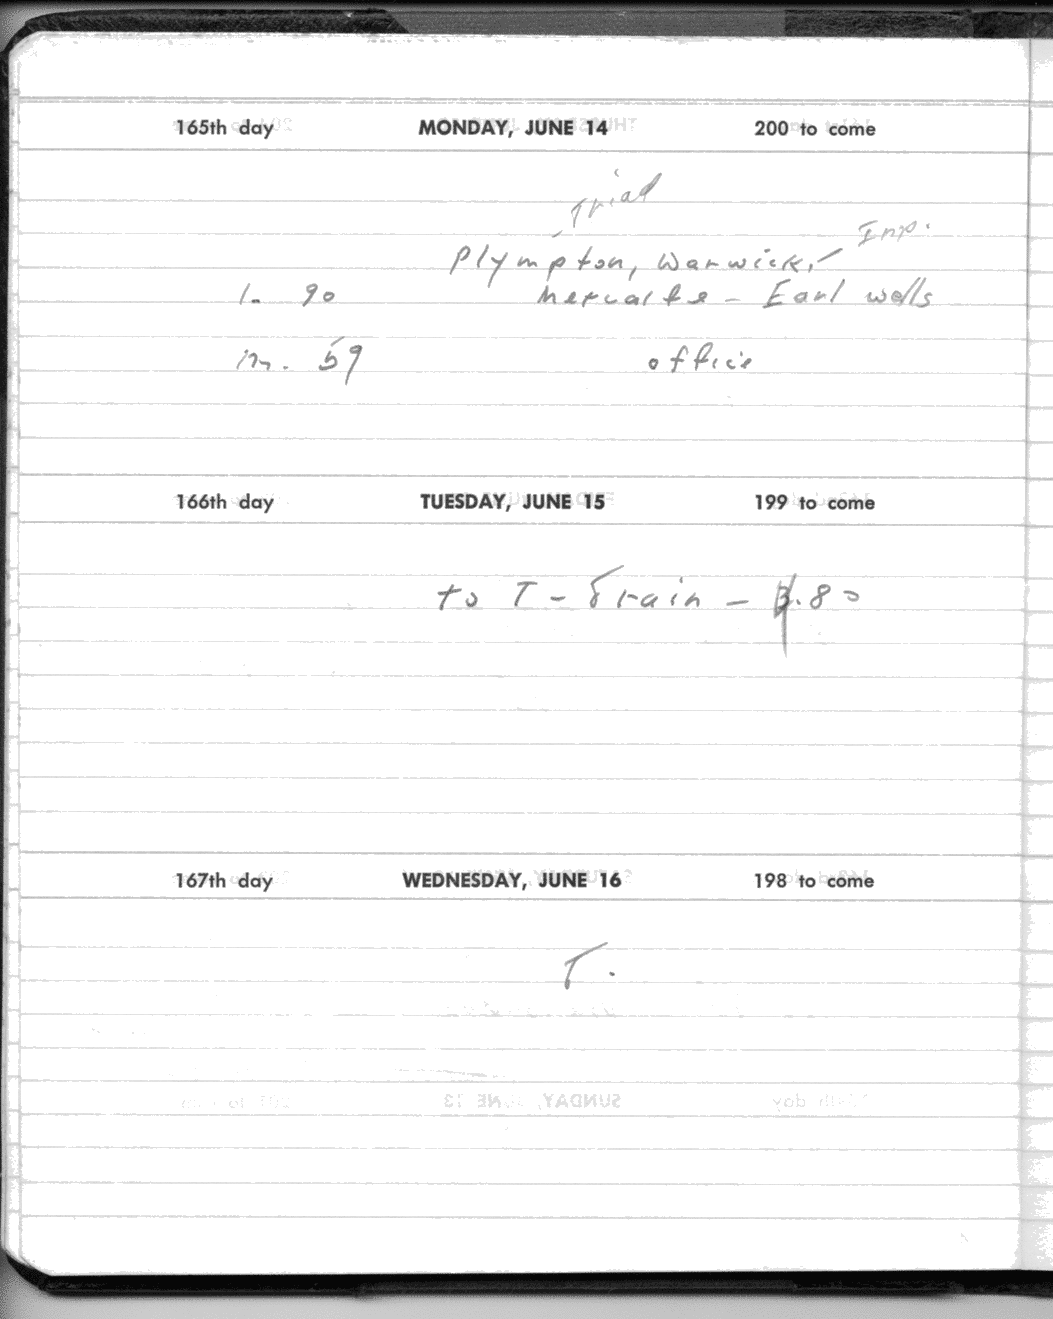 165th day MONDAY, JUNE 14 200 to come
Trial
Plympton, Warwick, Inp.
1. 90 Metcalfe - Earl wells
m. 59 office
166th day TUESDAY, JUNE 15 199 to come
to T - Train - .80
167th day WEDNESDAY, JUNE 16 198 to come
T.